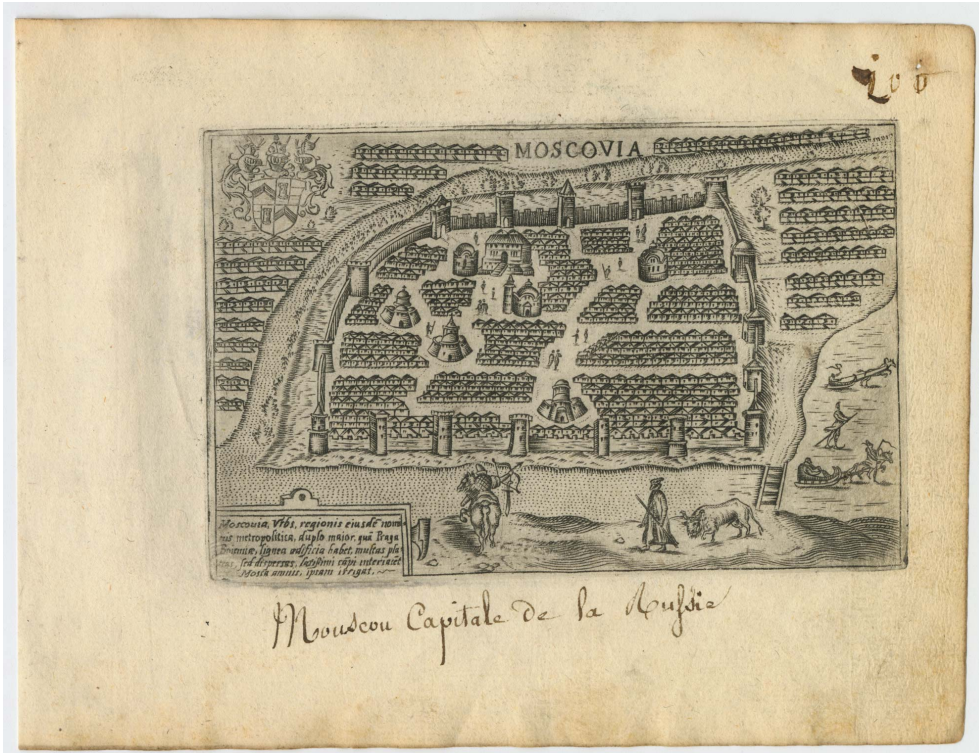 206
MOSCOVIA
Moscouia, Vrbs, regionis eiusdē nom
nis metropolitica, duplo maior, quā Praga
Boiemiæ, lignea ædificia habet, multas pla
teas, sed dispersas, latissimi cāpi interiacēt
Mosca amnis, ipsam irrigat.
Mouscou Capitale de la Russie